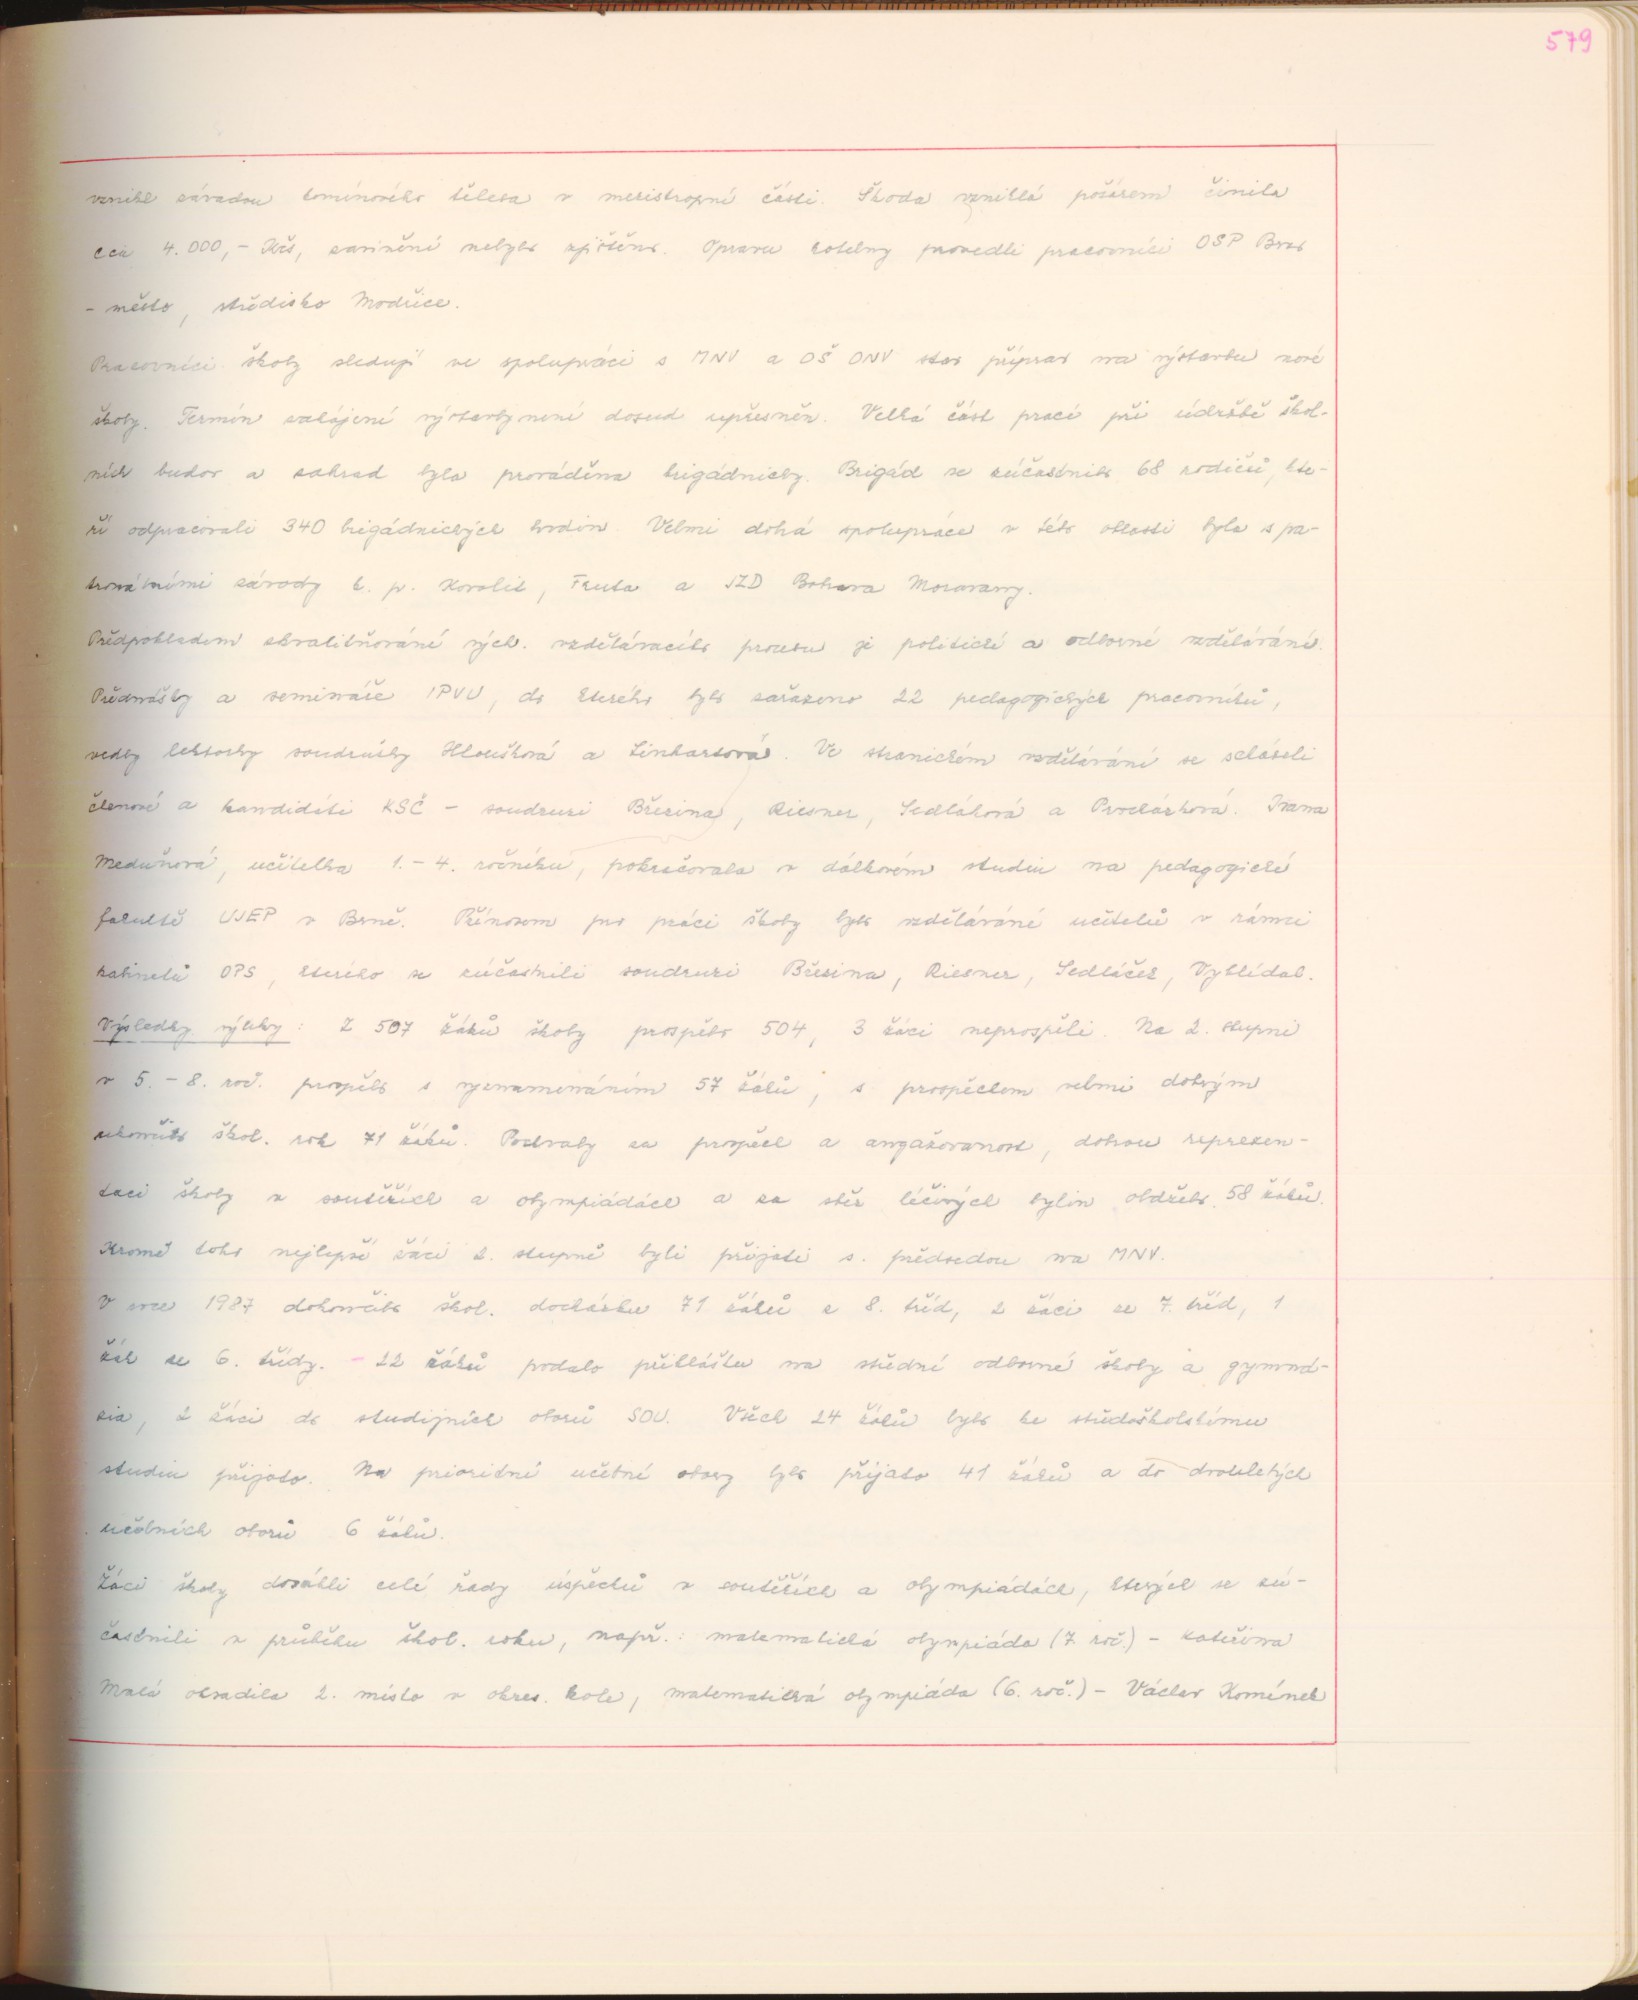 579
vznikl závadou komínového tělesa v mezistropní části. Škoda vzniklá požárem činila
cca 4.000,- Kčs, zavinění nebylo zjištěno. Opravu kotelny provedli pracovníci OSP Brno
- město, středisko Modřice.
Pracovníci školy sledují ve spolupráci s MNV a OŠ ONV stav příprav na výstavbu nové
školy. Termín zahájení výstavby není dosud upřesněn. Velká část prací při údržbě škol-
ních budov a zahrad byla prováděna brigádnicky. Brigád se zúčastnilo 68 rodičů, kte-
ří odpracovali 340 brigádnických hodin. Velmi dobrá spolupráce v této oblasti byla s pa-
tronátními závody k. p. Kovolit, Fruta a JZD Bohava Moravany.
Předpokladem zkvalitňování vých. vzdělávacího procesu je politické a odborné vzdělávání.
Přednášky a semináře IPVU, do kterého bylo zařazeno 22 pedagogických pracovníků,
vedly lektorky soudružky Hloušková a Linhartová. Ve stranickém vzdělávání se scházeli
členové a kandidáti KSČ - soudruzi Březina, Riesner, Sedláková a Procházková. Ivana
Meduňová, učitelka 1. - 4. ročníku, pokračovala v dálkovém studiu na pedagogické
fakultě UJEP v Brně. Přínosem pro práci školy bylo vzdělávání učitelů v rámci
kabinetů OPS, kterého se zúčastnili soudruzi Březina, Riesner, Sedláček, Vyhlídal.
Výsledky výuky: Z 507 žáků školy prospělo 504, 3 žáci neprospěli. Na 2. stupni
v 5. - 8. roč. prospělo s vyznamenáním 57 žáků, s prospěchem velmi dobrým
ukončilo škol. rok 71 žáků. Pochvaly za prospěch a angažovanost, dobrou reprezen-
taci školy v soutěžích a olympiádách a za sběr léčivých bylin obdrželo 58 žáků.
Kromě toho nejlepší žáci 2. stupně byli přijati s. předsedou na MNV.
V roce 1987 dokončilo škol. docházku 71 žáků z 8. tříd, 2 žáci ze 7. tříd, 1
žák ze 6. třídy. - 22 žáků podalo přihlášku na střední odborné školy a gymná-
zia, 2 žáci do studijních oborů SOU. Všech 24 žáků bylo ke středoškolskému
studiu přijato. Na prioritní učební obory bylo přijato 41 žáků a do dvouletých
učebních oborů 6 žáků.
Žáci školy dosáhli celé řady úspěchů v soutěžích a olympiádách, kterých se zú-
častnili v průběhu škol. roku, např.: matematická olympiáda (7. roč.) - Kateřina
Malá obsadila 2. místo v okres. kole, matematická olympiáda (6. roč.) - Václav Komínek